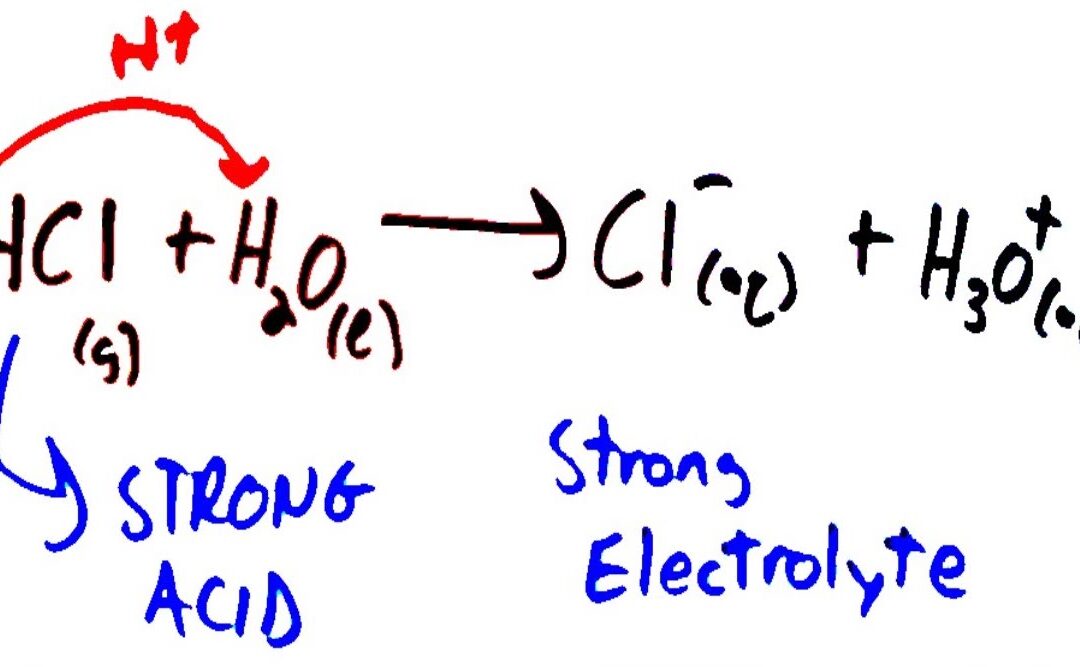 H⁺
HCl (g) + H₂O (l) → Cl⁻ (aq) + H₃O⁺ (a
STRONG
ACID
Strong
Electrolyte